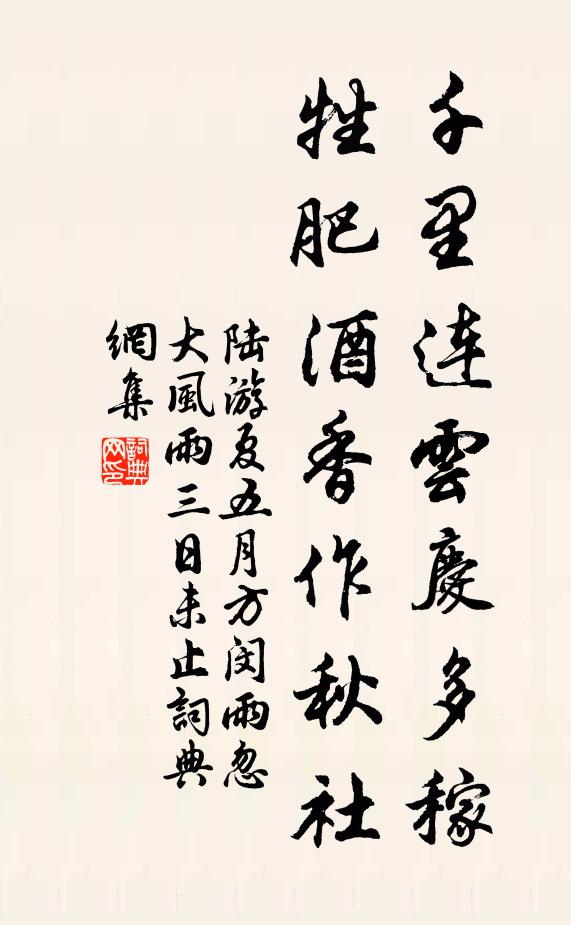 千里連雲慶多稼
牲肥酒香作秋社
陆游夏五月方闵雨忽
大風雨三日未止詞典
網集
詞典网印